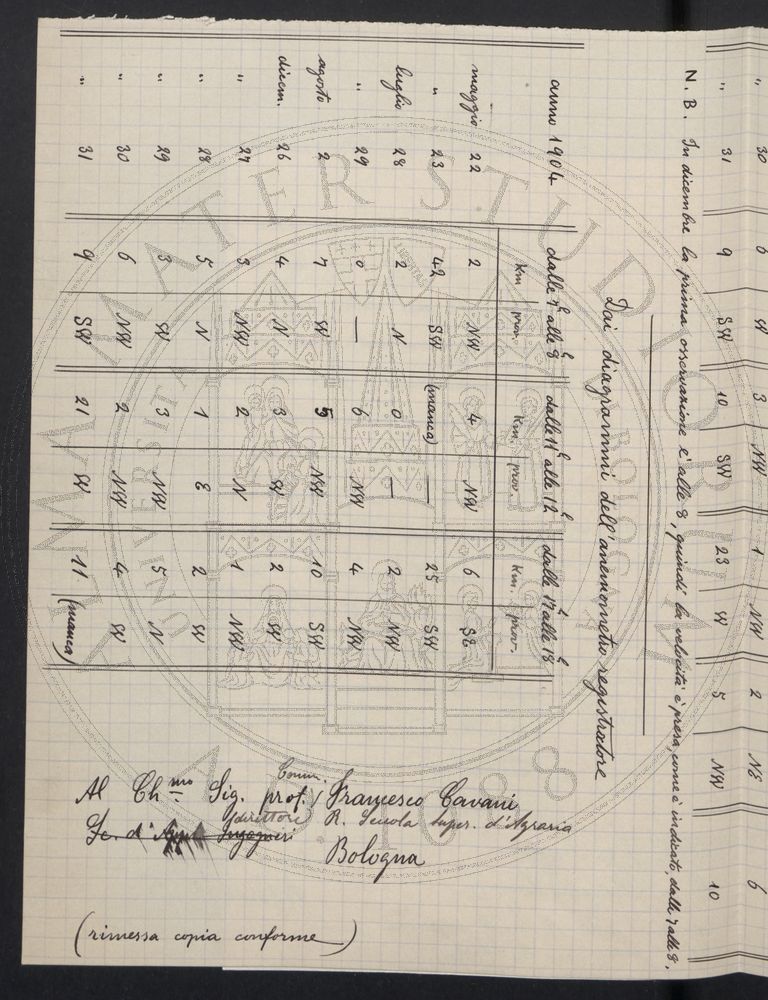 " 30 6 W 3 NW 1 NW 2 NE 6
" 31 9 SW 10 SW 23 W 5 NW 10
N. B. In dicembre la prima osservazione è alle 8, quindi la velocità è presa, come è indicato, dalle 7 alle 8.
Dai diagrammi dell'anemometro registratore
anno 1904 dalle 7h alle 8h dalle 11h alle 12h dalle 17h alle 18h
Km prov. Km. prov. Km. prov.
maggio 22 2 NW 4 NW 6 SE
" 23 42 SW (manca) — 25 SW
luglio 28 2 N 0 — 2 NW
" 29 0 — 6 NW 4 NW
agosto 2 7 W 5 NW 10 SW
dicem. 26 4 N 3 W 2 W
" 27 3 NW 2 N 1 NW
" 28 5 N 1 E 2 W
" 29 3 W 3 NW 5 N
" 30 6 NW 2 NW 4 W
" 31 9 SW 21 W 11 (manca)
Al Chmo. Sig. prof. / Comm. Francesco Cavani
direttore R. Scuola super. d'Agraria
Bologna
(rimessa copia conforme)
ALMA MATER STUDIORUM